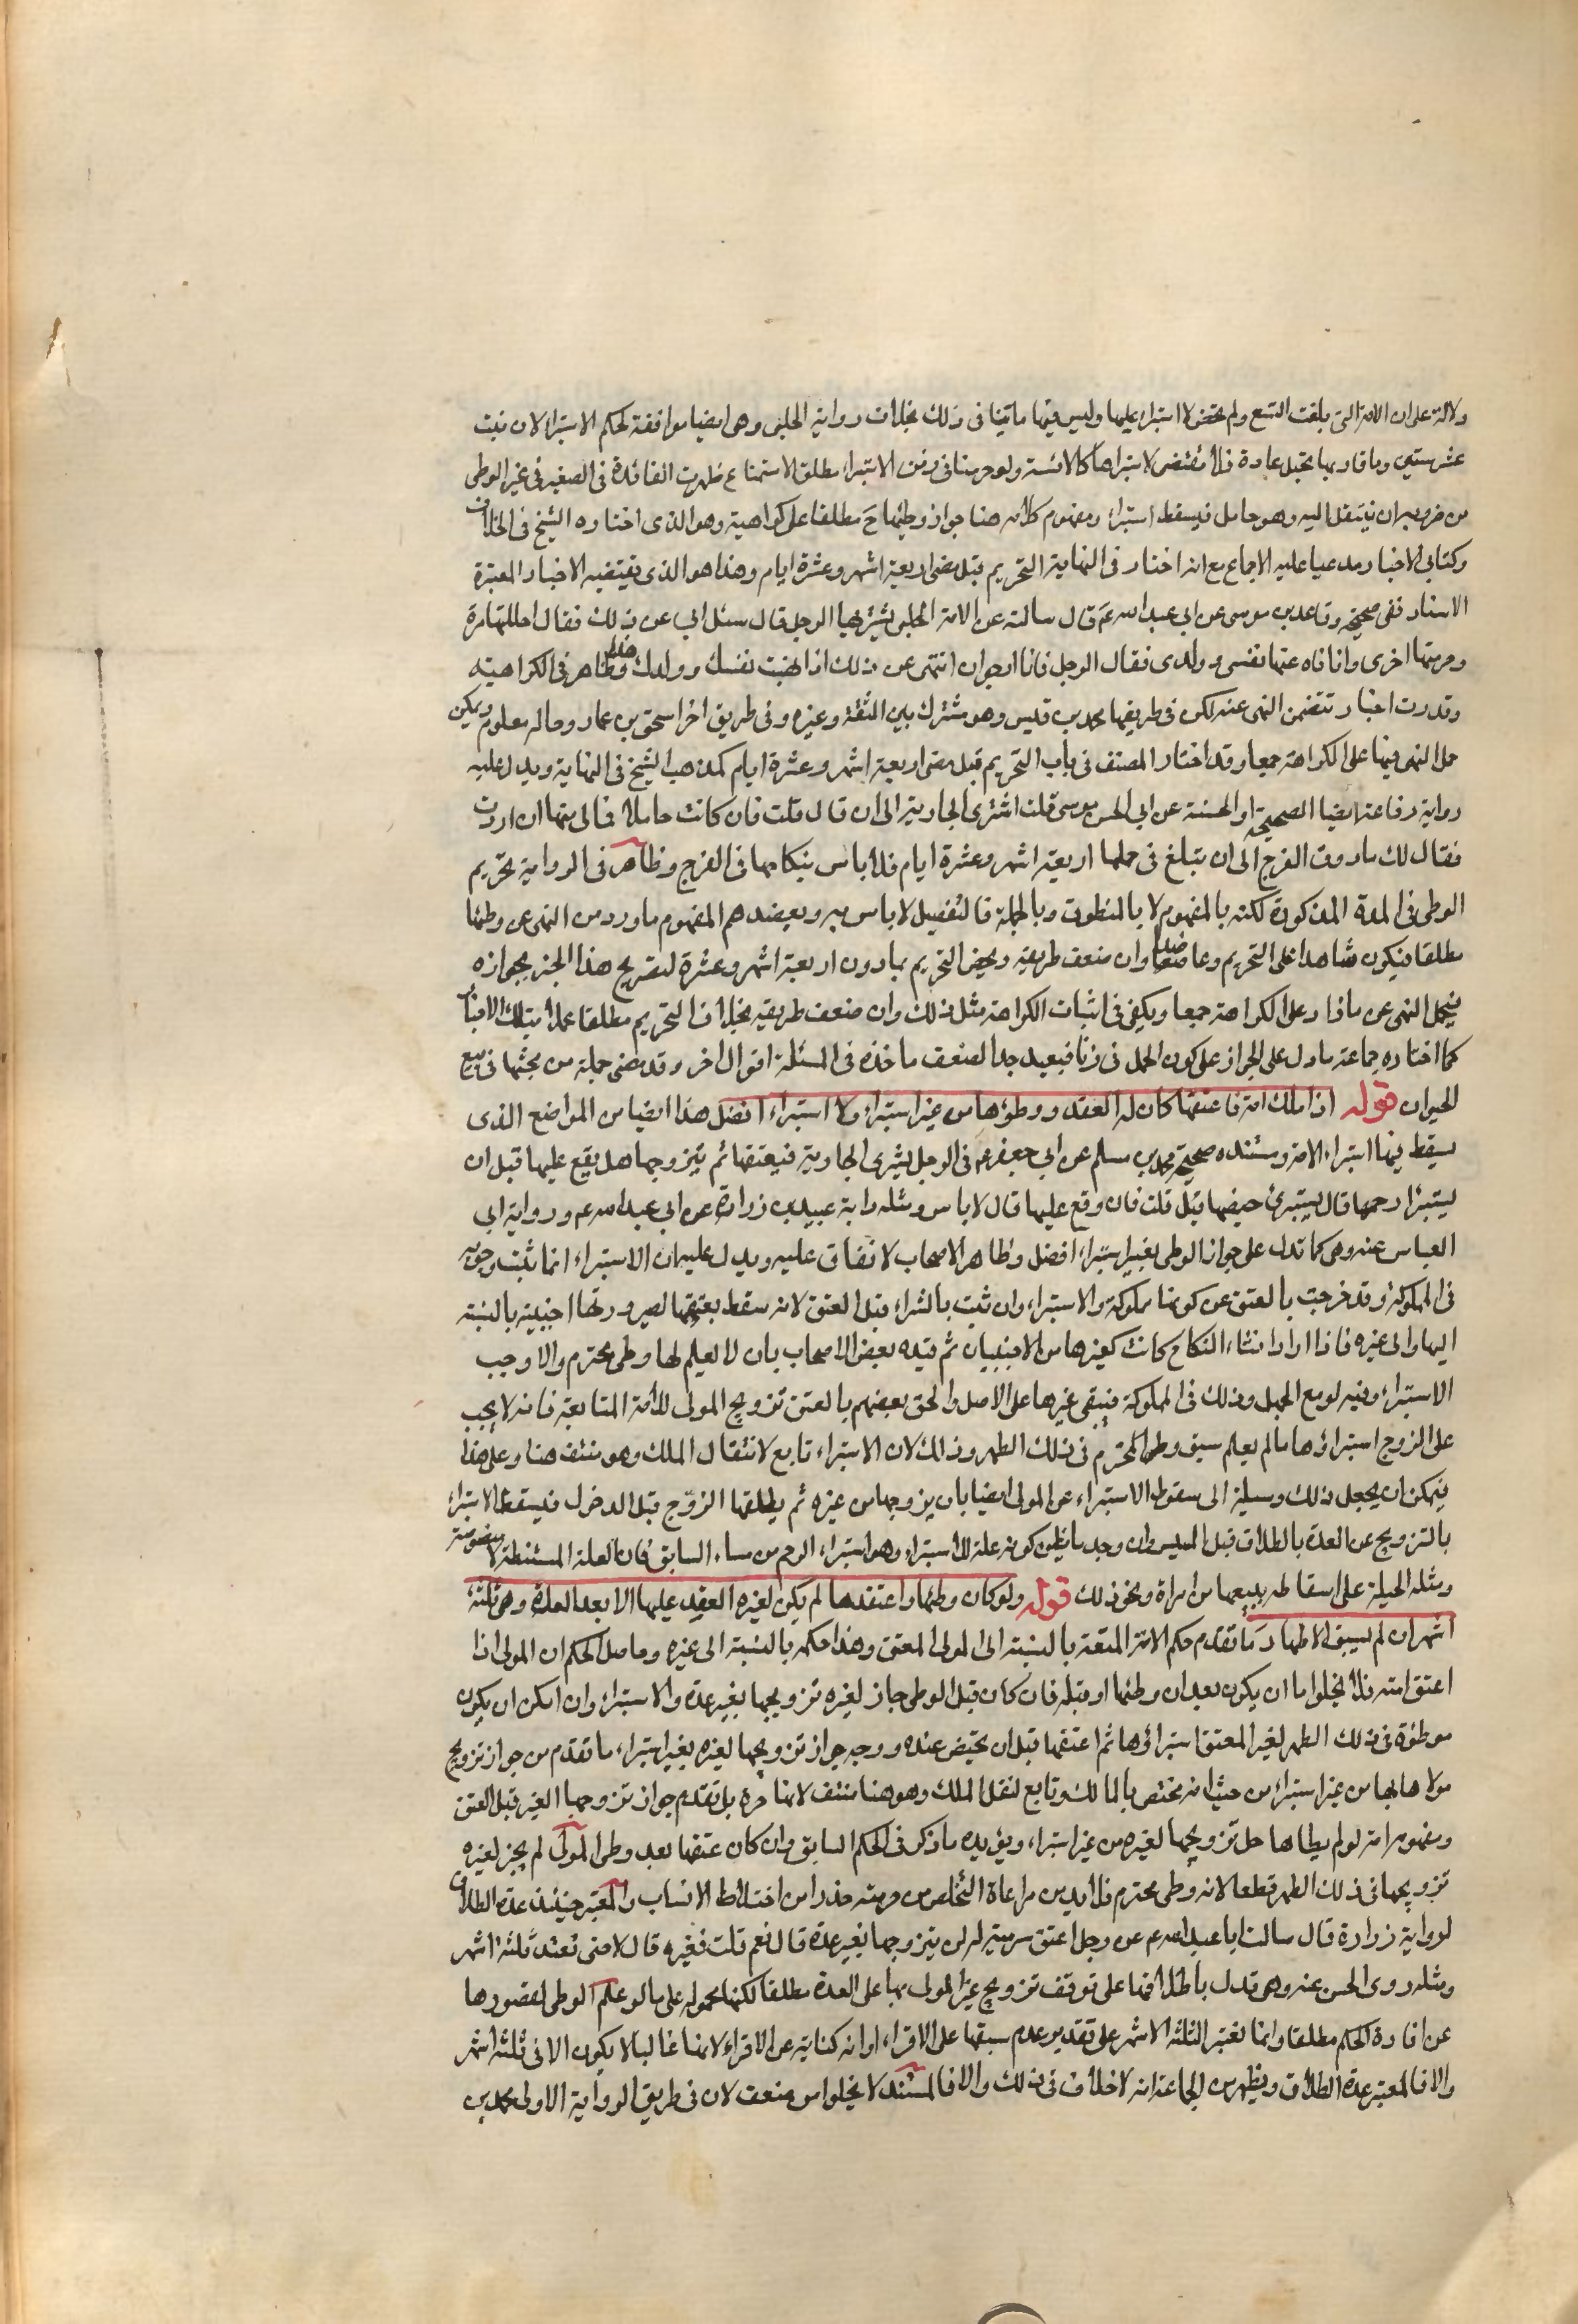 دلالة على ان الامة التى بلغت التسع ولم تحض لا استبراء عليها وليس فيها ما ينافى ذلك بخلاف رواية الحلبى وهى ايضا موافقة لحكم الاستبراء لان بنت
عشر سنين وما قاربها تحبل عادة فلا مقتضى لاستبراها كالائسة ولو حرمنا فى زمن الاستبراء مطلق الاستمتاع ظهرت الفائدة فى الصغيرة فى غير الوطى
من ضروبه ان ينتقل اليه وهو حامل فيسقط استبراء ومفهوم كلامه هنا جواز وطيها ح مطلقا على كراهية وهو الذى اختاره الشيخ فى الخلاف
وكتابى الاخبار مدعيا عليه الاجماع مع انه اختار فى النهاية التحريم قبل مضى اربعة اشهر وعشرة ايام وهذا هو الذى يقتضيه الاخبار المعتبرة
الاسناد ففى صحيحة رفاعة بن موسى عن ابى عبد الله عم قال سالته عن الامة الحبلى يشتريها الرجل قال سئل ابى عن ذلك فقال احلتها مرة
وحرمتها اخرى وانا ناه عنها نفسى وولدى فقال الرجل فانا ارجو ان انتهى عن ذلك اذا نهيت نفسك وولدك وظاهر فى الكراهية
وقد وردت اخبار تتضمن النهى عنه لكن فى طريقها محمد بن قيس وهو مشترك بين الثقة وغيره وفى طريق اخر اسحق بن عمار وحاله معلوم ويمكن
حمل النهى فيها على الكراهة جمعا وقد اختار المصنف فى باب التحريم قبل مضى اربعة اشهر وعشرة ايام كمذهب الشيخ فى النهاية ويدل عليه
رواية رفاعة ايضا الصحيحة او الحسنة عن ابى الحسن موسى قلت اشترى الجارية الى ان قال قلت فان كانت حاملا فمالى منها ان اردت
فقال لك مادون الفرج الى ان تبلغ فى حملها اربعة اشهر وعشرة ايام فلا باس بنكاحها فى الفرج وظاهر فى الرواية تحريم
الوطى فى المدة المذكورة لكنه بالمفهوم لا بالمنطوق وبالجملة فالتفصيل لا باس به ويعضد هم المفهوم ما ورد من النهى عن وطئها
مطلقا فيكون شاهدا على التحريم وعاضدا وان ضعف طريقه ويخص التحريم بمادون اربعة اشهر وعشرة لتصريح هذا الخبر بجوازه
فيحمل النهى عن مازاد على الكراهة جمعا ويكفى فى اثبات الكراهة مثل ذلك وان ضعف طريقه بخلاف التحريم مطلقا عملا بتلك الاخبار
كما اختاره جماعة مادل على الجواز على كون الحمل من زنا فبعيد جدا لضعف ماخذه فى المسئلة اقوال اخر وقد مضى جملة من بحثها فى بيع
الحيوان قوله اذا ملك امة فاعتقها كان له العقد ووطؤها من غير استبراء ولا استبراء افضل هذا ايضا من المواضع الذى
يسقط فيها استبراء الامة ومستنده صحيحة محمد بن مسلم عن ابى جعفر عم فى الرجل يشترى الجارية فيعتقها ثم يتزوجها هل يقع عليها قبل ان
يستبرا رحمها قال يستبرئ حيضها قبل قلت فان وقع عليها قال لا باس ومثله رواية عبيد بن زرارة عن ابى عبد الله عم ورواية ابى
العباس عنه وهى كما تدل على جواز الوطى بغير استبراء افضل وظاهر الاصحاب لاتفاق عليه ويدل عليه ان الاستبراء انما ثبت وجوبه
فى المملوكة وقد خرجت بالعتق عن كونها مملوكة والاستبراء وان ثبت بالشراء قبل العتق لانه سقط بعتقها لصيرورتها اجنبية بالنسبة
اليها والى غيره فاذا اراد انشاء النكاح كانت كغيرها من الاجنبيات ثم قيده بعض الاصحاب بان لا يعلم لها وطى محترم والا وجب
الاستبراء وفيه لو مع الجهل وذلك فى المملوكة فيبقى غيرها على الاصل والحق بعضهم بالعتق تزويج المولى للامة المتابعة فانه لا يجب
على الزوج استبراؤها مالم يعلم سبق وطى المحترم فى ذلك الطهر وذلك لان الاستبراء تابع لانتقال الملك وهو منتف هنا وعلى هذا
فيمكن ان يجعل ذلك وسيلة الى سقوط الاستبراء عن المولى ايضا بان يزوجها من غيره ثم يطلقها الزوج قبل الدخول فيسقط الاستبراء
بالتزويج عن العدة بالطلاق قبل المسيس وان وجد ما يظن كونه علة للاستبراء وهو استبراء الرحم من ماء السابق فان العلة المستنبطة لا منصوصة
ومثله الحيلة على اسقاطه ببيعها من امراة ونحو ذلك قوله ولو كان وطئها واعتقدها لم يكن لغيره العقد عليها الا بعد العدة وهى ثلثة
اشهر ان لم يسبق الاطهار ما تقدم حكم الامة المعتقة بالنسبة الى المولى المعتق وهذا حكمه بالنسبة الى غيره وحاصل الحكم ان المولى اذا
اعتق امته فلا يخلوا ما ان يكون بعد ان وطئها او قبله فان كان قبل الوطى جاز لغيره تزويجها بغير عدة والاستبراء وان امكن ان يكون
موطؤة فى ذلك الطهر لغير المعتق استبرائها ثم اعتقها قبل ان تحيض عنده ووجه جواز تزويجها لغيره بغير استبراء ما تقدم من جواز تزويج
مولاها بها من غير استبراء من حيث انه مختص بالمالك وتابع لنقل الملك وهو هنا منتف لانها حرة بل تقدم جواز تزوجها الغير قبل العتق
ومفهوم امته لو لم يطاها حل تزويجها لغيره من غير استبراء ويؤيده ما ذكر فى الحكم السابق وان كان عتقها بعد وطى المولى لم يجز لغيره
تزويجها فى ذلك الطهر قطعا لانه وطى محترم فلا بد من مراعاة التخلص من حرمته حذرا من اختلاط الانساب والمعتبر حينئذ عدة الطلاق
لرواية زرارة قال سالت ابا عبد الله عم عن رجل اعتق سريته له ان يتزوجها بغير عدة قال نعم قلت فغيره قال لا حتى تعتد ثلثة اشهر
ومثله روى الحسن عنه وهى تدل باطلاقها على توقف تزويج غير المولى بها على العدة مطلقا لكنها محمولة على ما لو علم الوطى لقصورها
عن افادة الحكم مطلقا وانما تعتبر الثلثة الاشهر على تقدير عدم سبقها على الاقراء او انه كناية عن الاقراء لانها غالبا لا يكون الا فى ثلثة اشهر
والا فالمعتبر عدة الطلاق ويظهر من الجماعة انه لا خلاف فى ذلك والا فالمستند لا يخلوا من ضعف لان فى طريق الرواية الاولى محمد بن